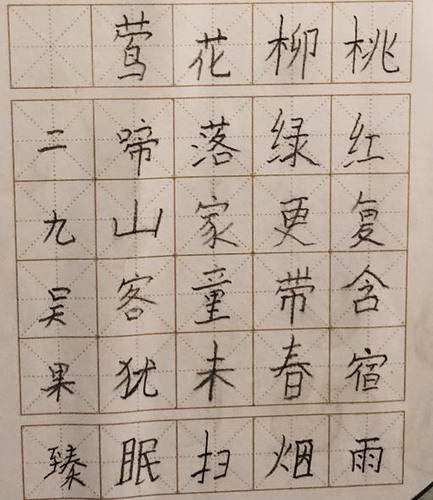 桃红复含宿雨
柳绿更带春烟
花落家童未扫
莺啼山客犹眠
二九吴果臻